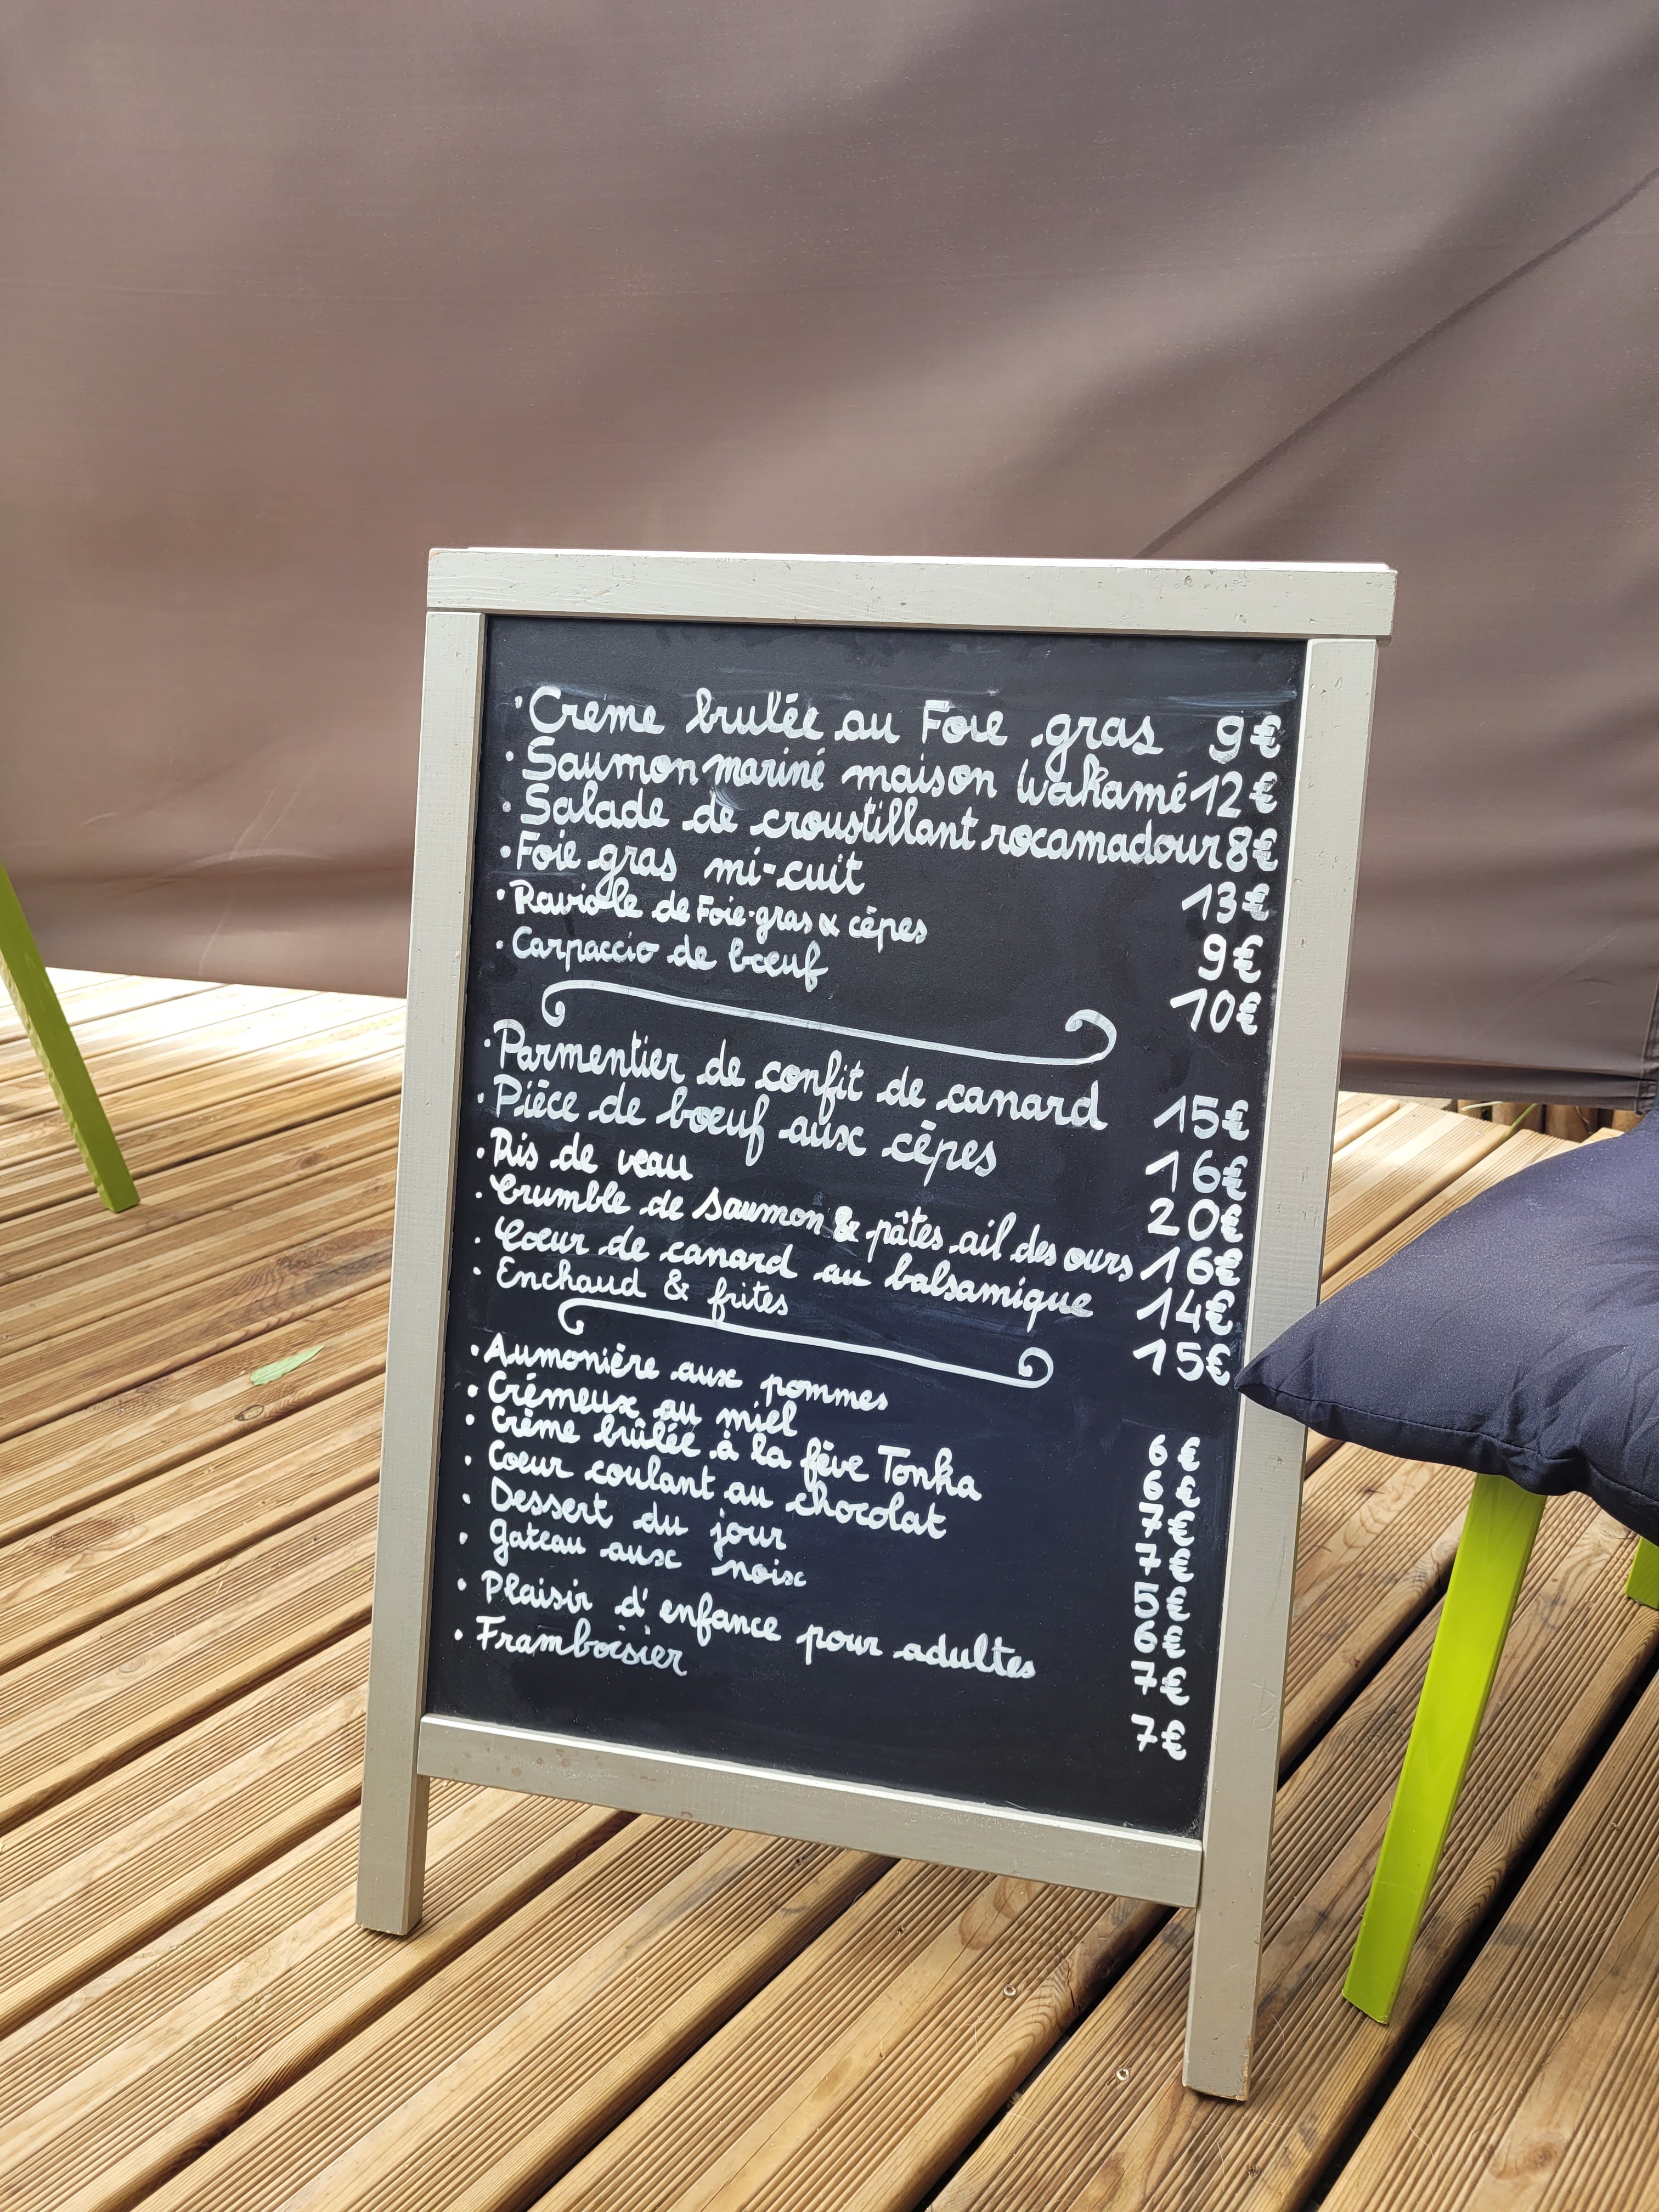 · Créme brulée au Foie gras 9€
· Saumon mariné maison Wakamé 12€
· Salade de croustillant rocamadour 8€
· Foie gras mi-cuit 13€
· Raviole de Foie-gras & cêpes 9€
· Carpaccio de bœuf 10€
· Parmentier de confit de canard 15€
· Pièce de bœuf aux cêpes 16€
· Ris de veau 20€
· Crumble de saumon & pâtes ail des ours 16€
· Coeur de canard au balsamique 14€
· Enchaud & frites 15€
· Aumonière aux pommes 6€
· Crémeux au miel 6€
· Crème brûlée à la fève Tonka 7€
· Coeur coulant au chocolat 7€
· Dessert du jour 5€
· Gateau aux noix 6€
· Plaisir d'enfance pour adultes 7€
· Framboisier 7€